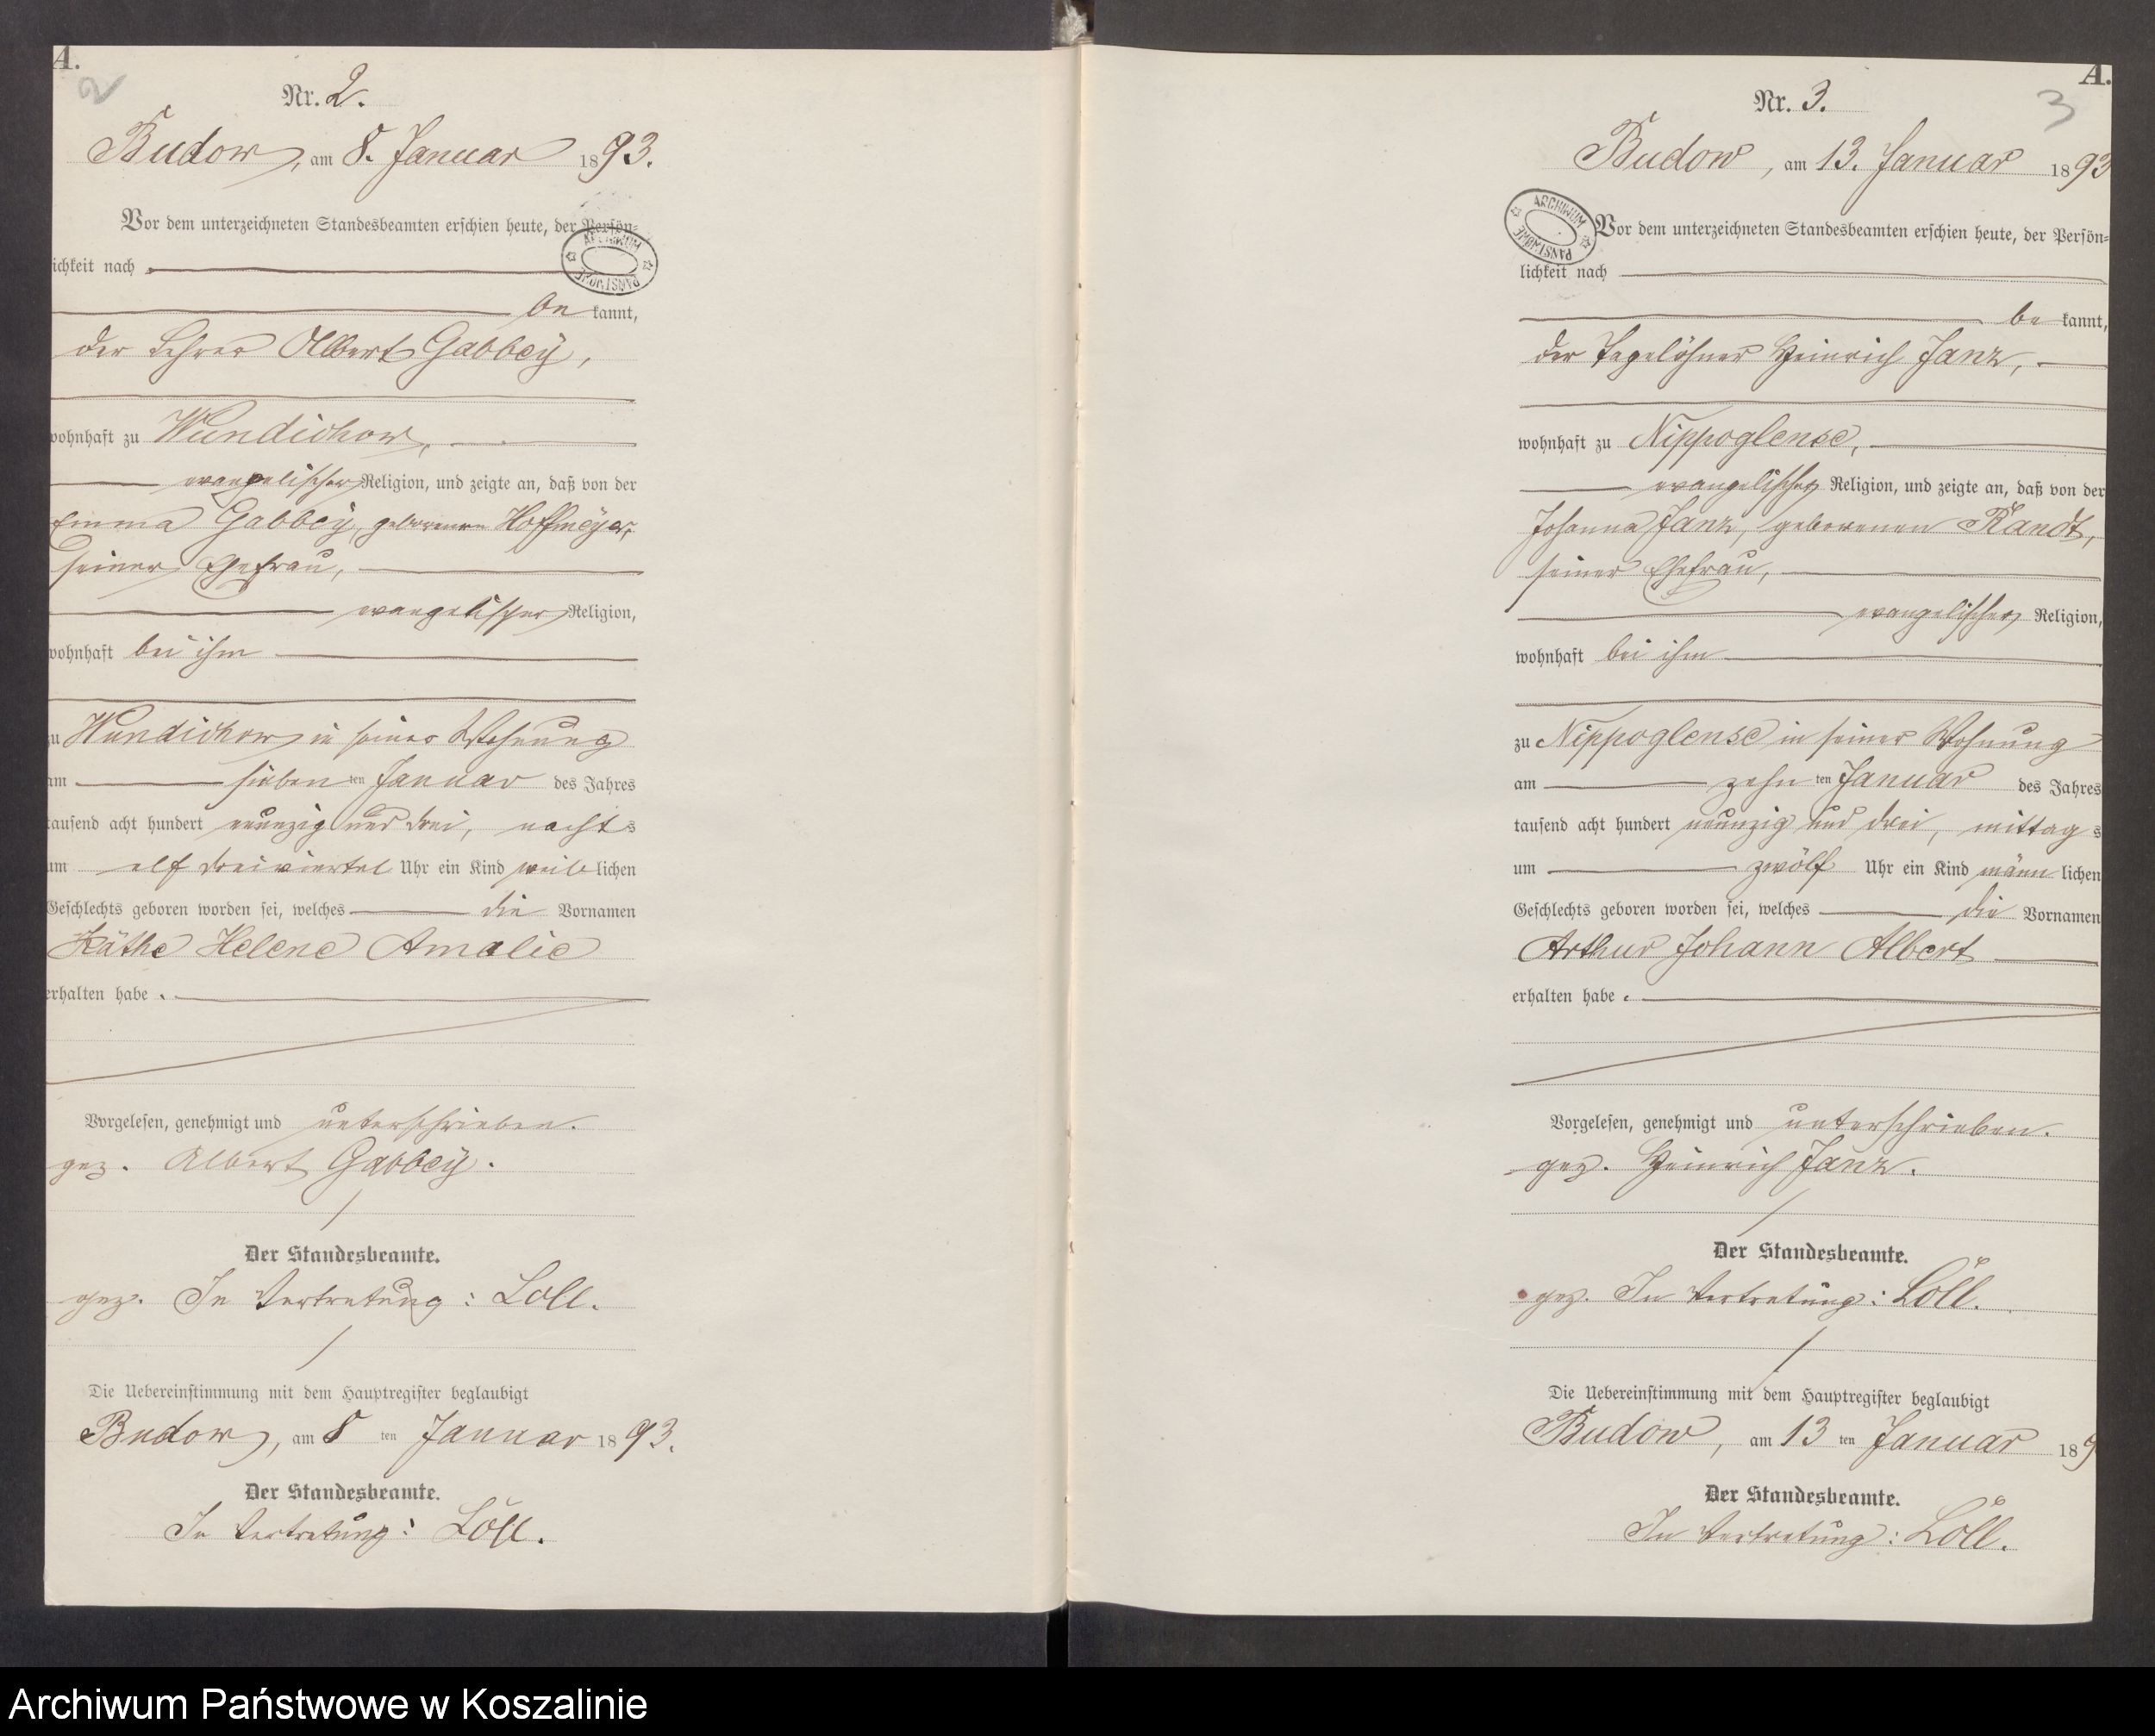 A.
2
Nr. 2.
Budow, am 8. Januar 1893.
Vor dem unterzeichneten Standesbeamten erschien heute, der Persön-
ichkeit nach
ARCHIWUM PAŃSTWOWE
be kannt,
der Lehrer Albert Gabbey,
wohnhaft zu Wundichow,
evangelischer Religion, und zeigte an, daß von der
Emma Gabbey, geborenen Hoffmeyer,
seiner Ehefrau,
evangelischer Religion,
wohnhaft bei ihm
zu Wundichow in seiner Wohnung
am sieben ten Januar des Jahres
tausend acht hundert neunzig und drei, nachts
um elf dreiviertel Uhr ein Kind weib lichen
Geschlechts geboren worden sei, welches die Vornamen
Käthe Helene Amalie
erhalten habe.
Vorgelesen, genehmigt und unterschrieben.
gez. Albert Gabbey.
Der Standesbeamte.
gez. In Vertretung: Löll.
Die Uebereinstimmung mit dem Hauptregister beglaubigt
Budow, am 8 ten Januar 1893.
Der Standesbeamte.
In Vertretung: Löll.
A.
3
Nr. 3.
Budow, am 13. Januar 1893
ARCHIWUM PAŃSTWOWE
Vor dem unterzeichneten Standesbeamten erschien heute, der Persön-
lichkeit nach
be kannt,
der Tagelöhner Heinrich Janz,
wohnhaft zu Nippoglense,
evangelischer Religion, und zeigte an, daß von der
Johanna Janz, geborenen Kandt,
seiner Ehefrau,
evangelischer Religion,
wohnhaft bei ihm
zu Nippoglense in seiner Wohnung
am zehn ten Januar des Jahres
tausend acht hundert neunzig und drei, mittag s
um zwölf Uhr ein Kind männ lichen
Geschlechts geboren worden sei, welches die Vornamen
Arthur Johann Albert
erhalten habe.
Vorgelesen, genehmigt und unterschrieben.
gez. Heinrich Janz.
Der Standesbeamte.
gez. In Vertretung: Löll.
Die Uebereinstimmung mit dem Hauptregister beglaubigt
Budow, am 13 ten Januar 189
Der Standesbeamte.
In Vertretung: Löll.
Archiwum Państwowe w Koszalinie